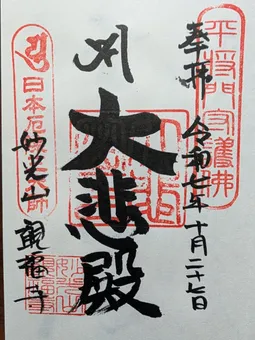 奉拝
令和七年十月二十七日
大悲殿
妙光山
観福寺
平将門守護佛
日本厄除
師